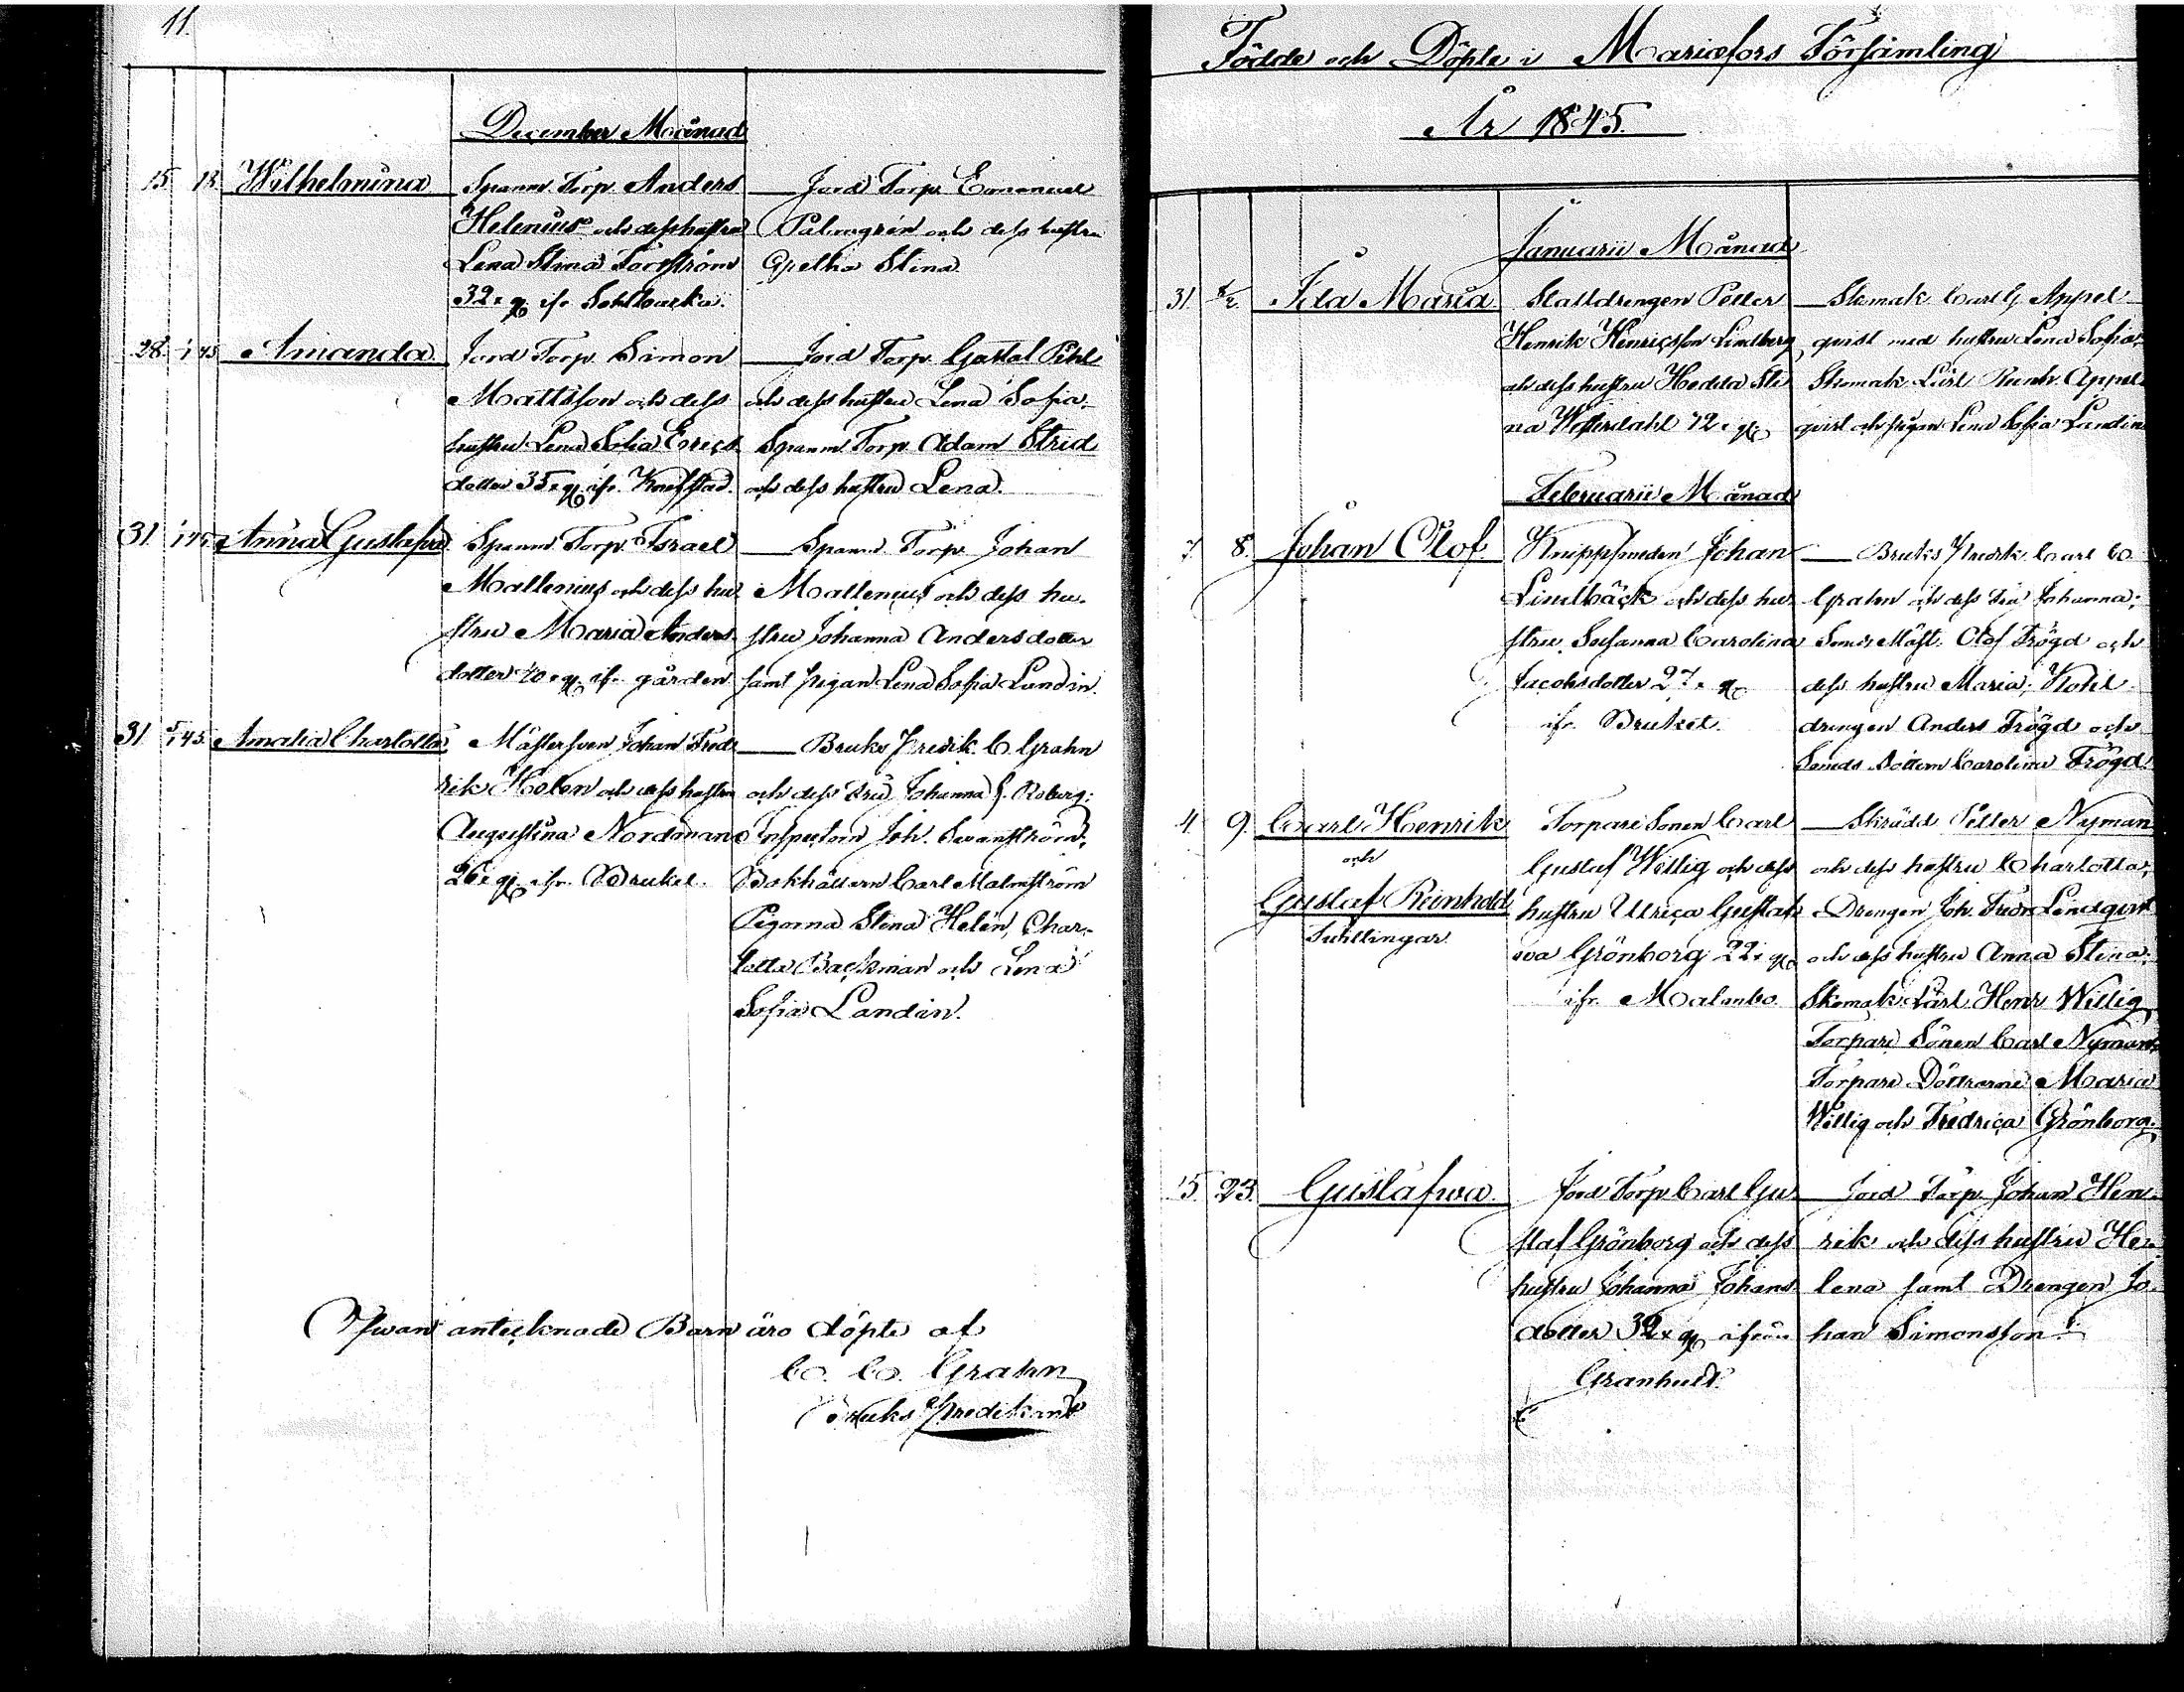 11.
December Månad
15. 18. Wilhelmina Spanm Torp. Anders Jord Torp. Emanuel
Helenius och dess hustru Palmgrén och dess hustru
Lena Stina Forsström Stina
32. ifr.
28. 1/1 45 Amanda Jord Torp. Simon Jord Torp. Gustaf Pihl
Mattsson och dess och dess hustru Lena Sofia.
hustru Lena Sofia Erics Spanm Torp Adam Strid
dotter 35. ifr. och dess hustru Lena.
31 1/1 45 Anna Gustafva Spanm Torp. Israel Spanm Torp. Johan
Mallenius och dess hu Mallenius och dess hu
stru Maria Anders stru Johanna Andersdotter
dotter 40. ifr. gården samt pigan Lena Sofia Lundin.
31 5/1 45. Amalia Charlotta Mästersven Johan Fred Bruks Predik. C Grahn
rik Holen och dess hustru och dess Fru Johanna G. Roberg;
Augustina Nordman Inspectorn Joh. Svanström;
26. ifr. Bruket. Bokhållarn Carl Malmström
Pigorna Stina Helén, Char
lotta Backman och Lena
Sofia Landin.
Ofwan antecknade Barn äro döpte af
C. C. Grahn
Bruks Predikant
Födde och Döpte i Mariæfors Församling
År 1845.
Januarii Månad
31. 8/2. Ida Maria Stalldrengen Petter Skomak. Carl G. Appel
Henrik Henricsson Lindberg qvist med hustru Lena Sofia;
och dess hustru Hedda Sti Skomak. Lärl. Reinh. Appel
na Westerdahl qvist och pigan Lena Sofia Landin
Februarii Månad
7. 8. Johan Olof. Knippsmeden Johan Bruks Predik. Carl C
Lindbäck och dess hu Grahn och dess Fru Johanna;
stru Susanna Carolina Smids Mäst. Olof Frögd och
Jacobsdotter 27. dess hustru Maria; Kohl
ifr. Bruket. drengen Anders Frögd och
Smeds Dottern Carolina Frögd.
4. 9. Carl Henrik Torpare Sonen Carl Skrädd. Petter Nyman
och Gustaf Willig och dess och dess hustru Charlotta;
Gustaf Reinhold hustru Ulrica Gustaf Drengen Joh. Lindqvist
Tvillingar. va Grönborg 22. och dess hustru Anna Stina;
ifr. Malmbo. Skomak. Lärl. Henr Willig
Torpare Sonen Carl Nyman;
Torpare Döttrarne Maria
Willig och Fredrica Grönborg.
15. 23. Gustafwa. Jord Torp. Carl Gu Jord Torp. Johan Hen
staf Grönborg och dess rik och dess hustru He
hustru Johanna Johans lena samt Drengen Jo
dotter 32. ifrån han Simonsson.
Granhult.